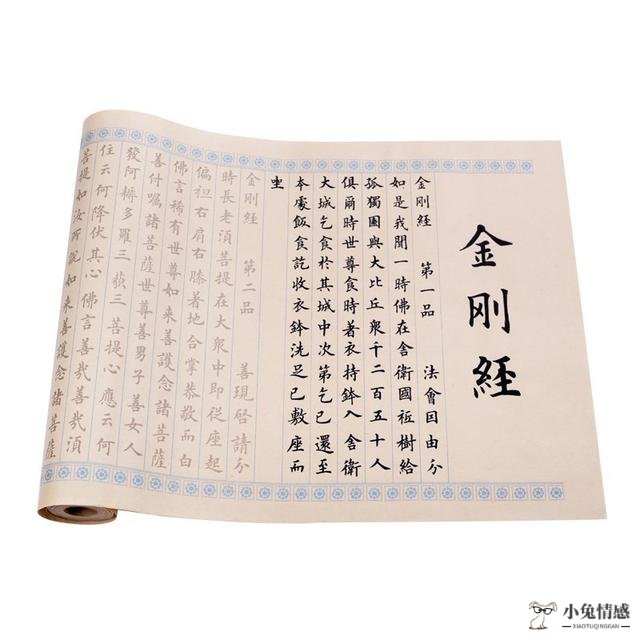 金剛經
金剛經 第一品 法會因由分
如是我聞一時佛在舍衛國祗樹給
孤獨園與大比丘衆千二百五十人
俱爾時世尊食時著衣持鉢入舍衛
大城乞食於其城中次第乞已還至
本處飯食訖收衣鉢洗足已敷座而
坐
金剛經 第二品 善現啓請分
時長老須菩提在大衆中即從座起
偏袒右肩右膝著地合掌恭敬而白
佛言稀有世尊如来善護念諸菩薩
善付囑諸菩薩世尊善男子善女人
發阿耨多羅三藐三菩提心應云何
住云何降伏其心佛言善哉善哉須
菩提如汝所說如来善護念諸菩薩
小兔情感
XIAOTUQINGGAN